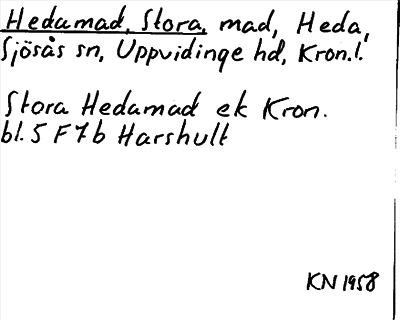 Hedamad, Stora, mad, Heda,
Sjösås sn, Uppvidinge hd, Kron.l.
Stora Hedamad ek Kron.
bl. 5 F7b Harshult
KN 1958